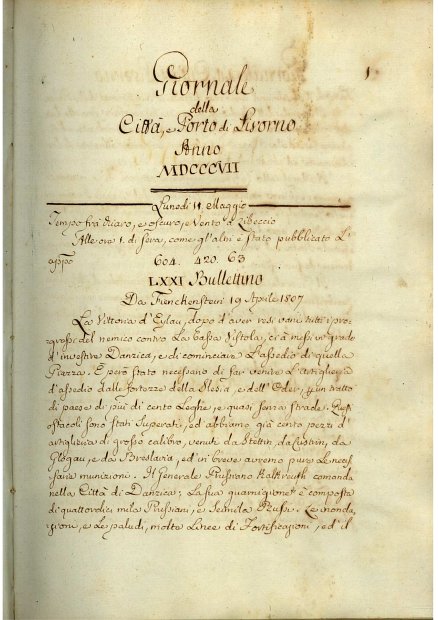 1
Giornale
della
Città, e Porto di Livorno
Anno
MDCCCVII
Lunedì 11. Maggio
Tempo fra chiaro, e oscuro, e Vento a Libeccio
Alle ore 1. di sera, come gl'altri è stato pubblicato l'
appo
604. 420. 63
LXXI Bullettino
Da Finckenstein 19 Aprile 1807
La Vittoria d'Eylau, dopo d'aver resi vani tutti i pro-
grossi del nemico contro la bassa Vistola, ci à messi in grado
d'investire Danzica, e di cominciare l'assedio di quella
Piazza. È però stato necessario di far venire l'artiglieria
d'assedio dalle fortezze della Slesia, e dell'Oder, p un tratto
di paese di più di cento Leghe, e quasi senza strade. Questi
ostacoli sono stati superati, ed abbiamo già cento pezzi d'
artiglieria di grosso calibro, venuti da Stettin, da Custrin, da
Glogau, e da Breslavia, ed in breve avremo pure le neces-
sarie munizioni. Il Generale Prussiano Kalkreuth comanda
nella Città di Danzica; La sua guarnigione è composta
di quattordici mila Prussiani, e seimila Russi. Le inonda-
zioni, e le paludi, molte linee di Fortificazioni, ed il